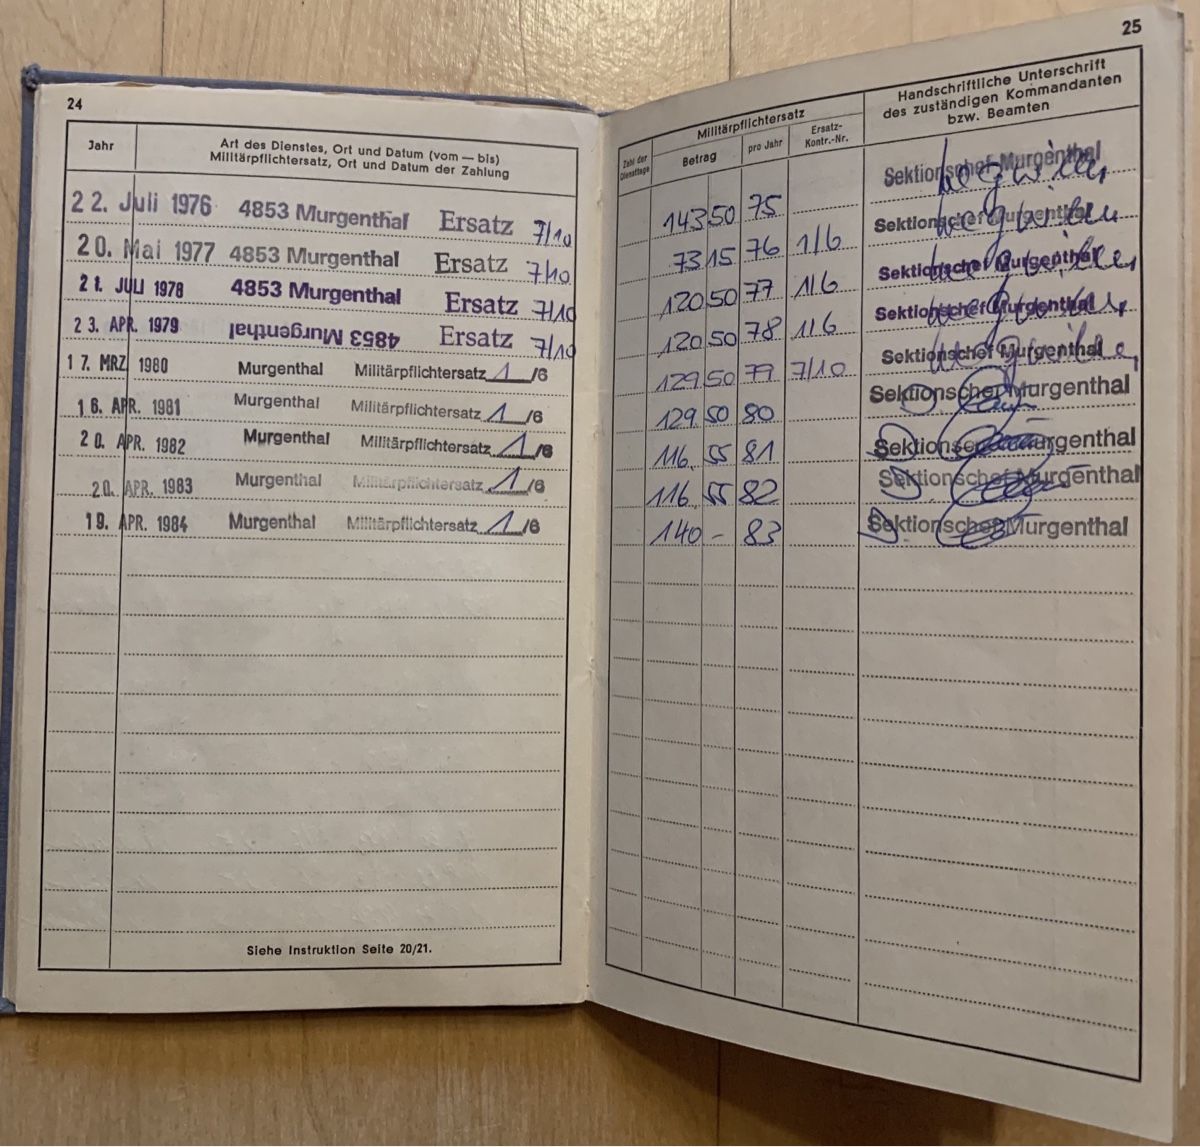 24
Jahr
Art des Dienstes, Ort und Datum (vom — bis)
Militärpflichtersatz, Ort und Datum der Zahlung
22. Juli 1976 4853 Murgenthal Ersatz 7/10
20. Mai 1977 4853 Murgenthal Ersatz 7/10
21. JULI 1978 4853 Murgenthal Ersatz 7/10
23. APR. 1979 4853 Murgenthal Ersatz 7/10
17. MRZ. 1980 Murgenthal Militärpflichtersatz 1/6
16. APR. 1981 Murgenthal Militärpflichtersatz 1/6
20. APR. 1982 Murgenthal Militärpflichtersatz 1/6
20. APR. 1983 Murgenthal Militärpflichtersatz 1/6
19. APR. 1984 Murgenthal Militärpflichtersatz 1/6
Siehe Instruktion Seite 20/21.
25
Zahl der Diensttage
Militärpflichtersatz
Betrag
pro Jahr
Ersatz-
Kontr.-Nr.
Handschriftliche Unterschrift
des zuständigen Kommandanten
bzw. Beamten
143 50 75 Sektionschef Murgenthal
73 15 76 1/6 Sektionschef Murgenthal
120 50 77 1/6 Sektionschef Murgenthal
120 50 78 1/6 Sektionschef Murgenthal
129 50 79 7/10 Sektionschef Murgenthal
129. 50 80 Sektionschef Murgenthal
116. 55 81 Sektionschef Murgenthal
116. 55 82 Sektionschef Murgenthal
140 - 83 Sektionschef Murgenthal